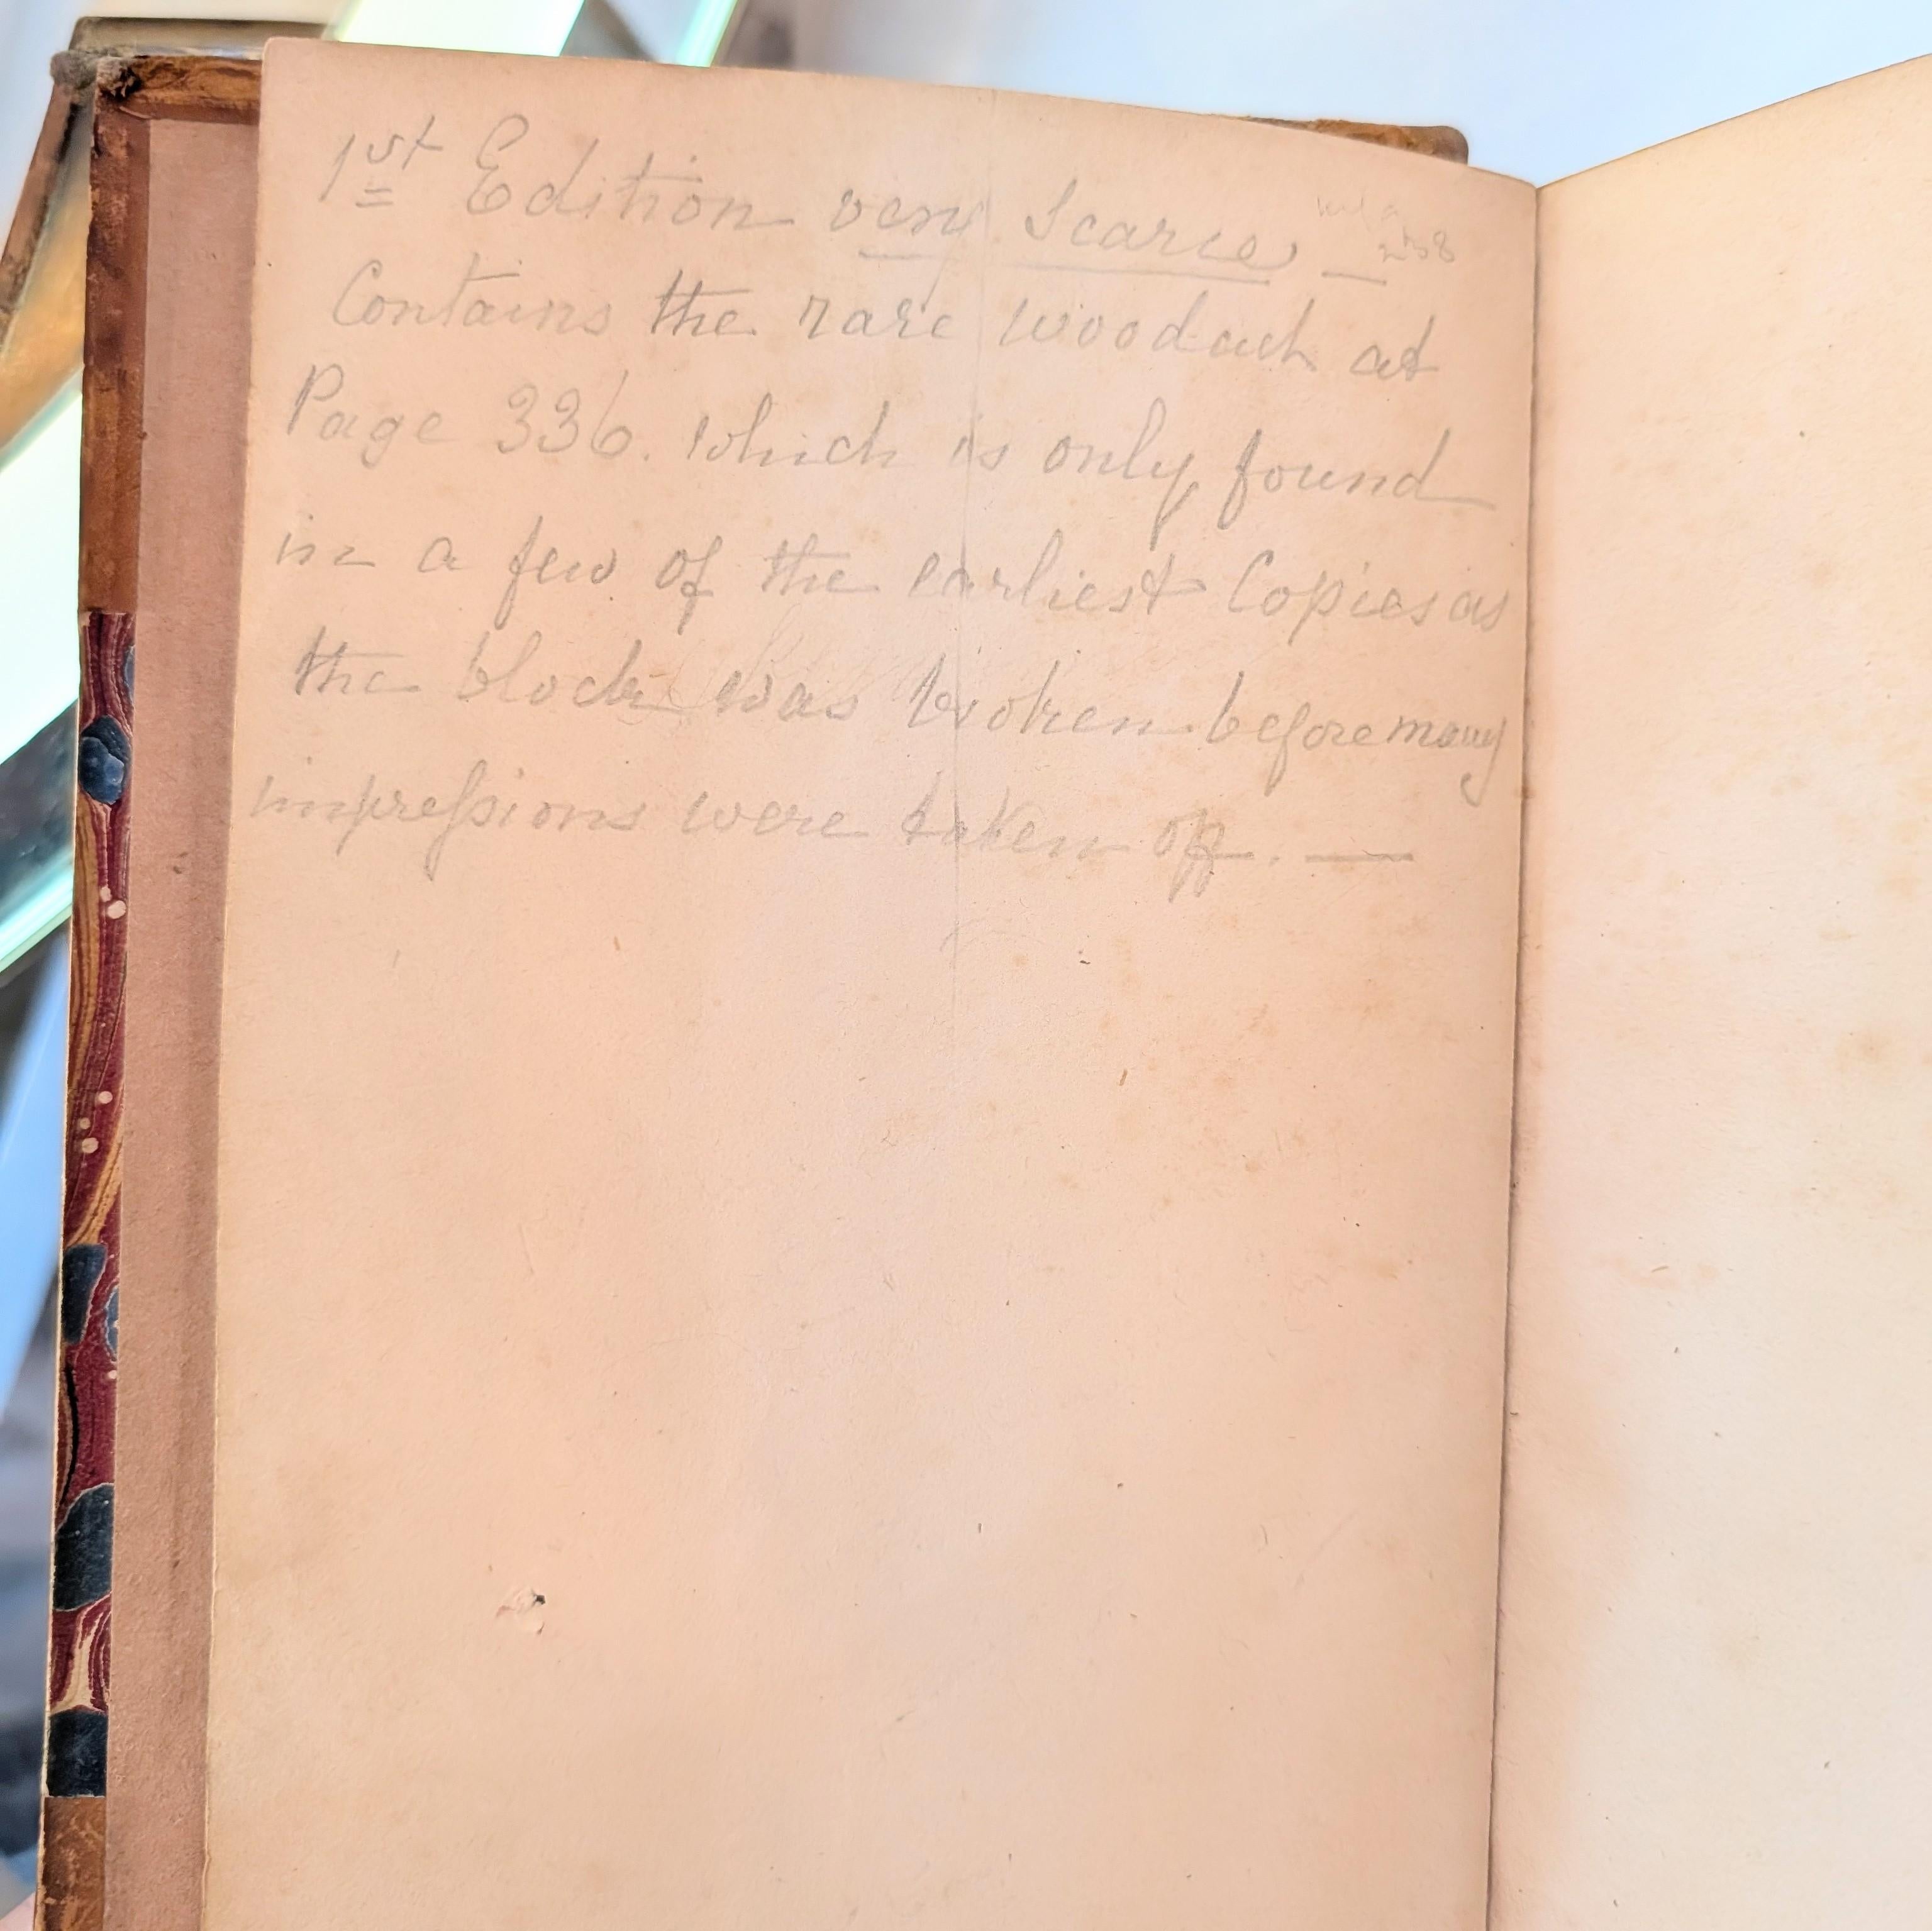 1st Edition very Scarce —
Contains the rare woodcut at
Page 336. which is only found
in a few of the earliest Copies as
the block was broken before many
impreſsions were taken off. —